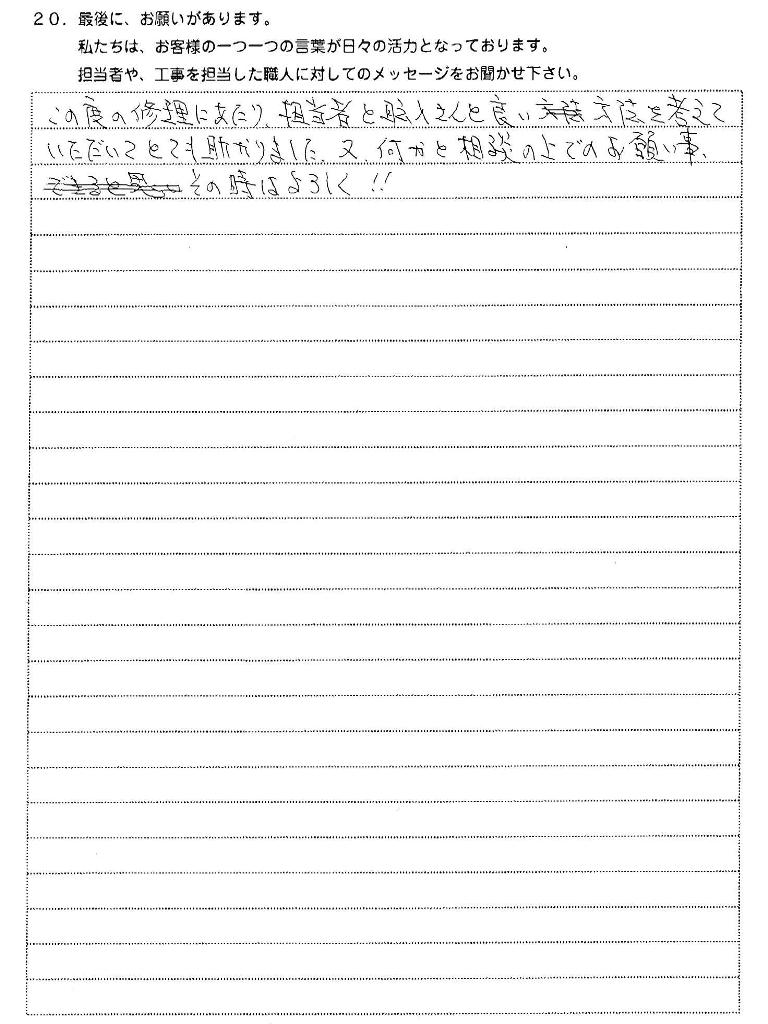 20．最後に、お願いがあります。
私たちは、お客様の一つ一つの言葉が日々の活力となっております。
担当者や、工事を担当した職人に対してのメッセージをお聞かせ下さい。
この度の修理にあたり、担当者と職人さんと良い方法を考えて
いただいてとても助かりました、又、何かと相談の上でのお願い事、
その時はよろしく!!